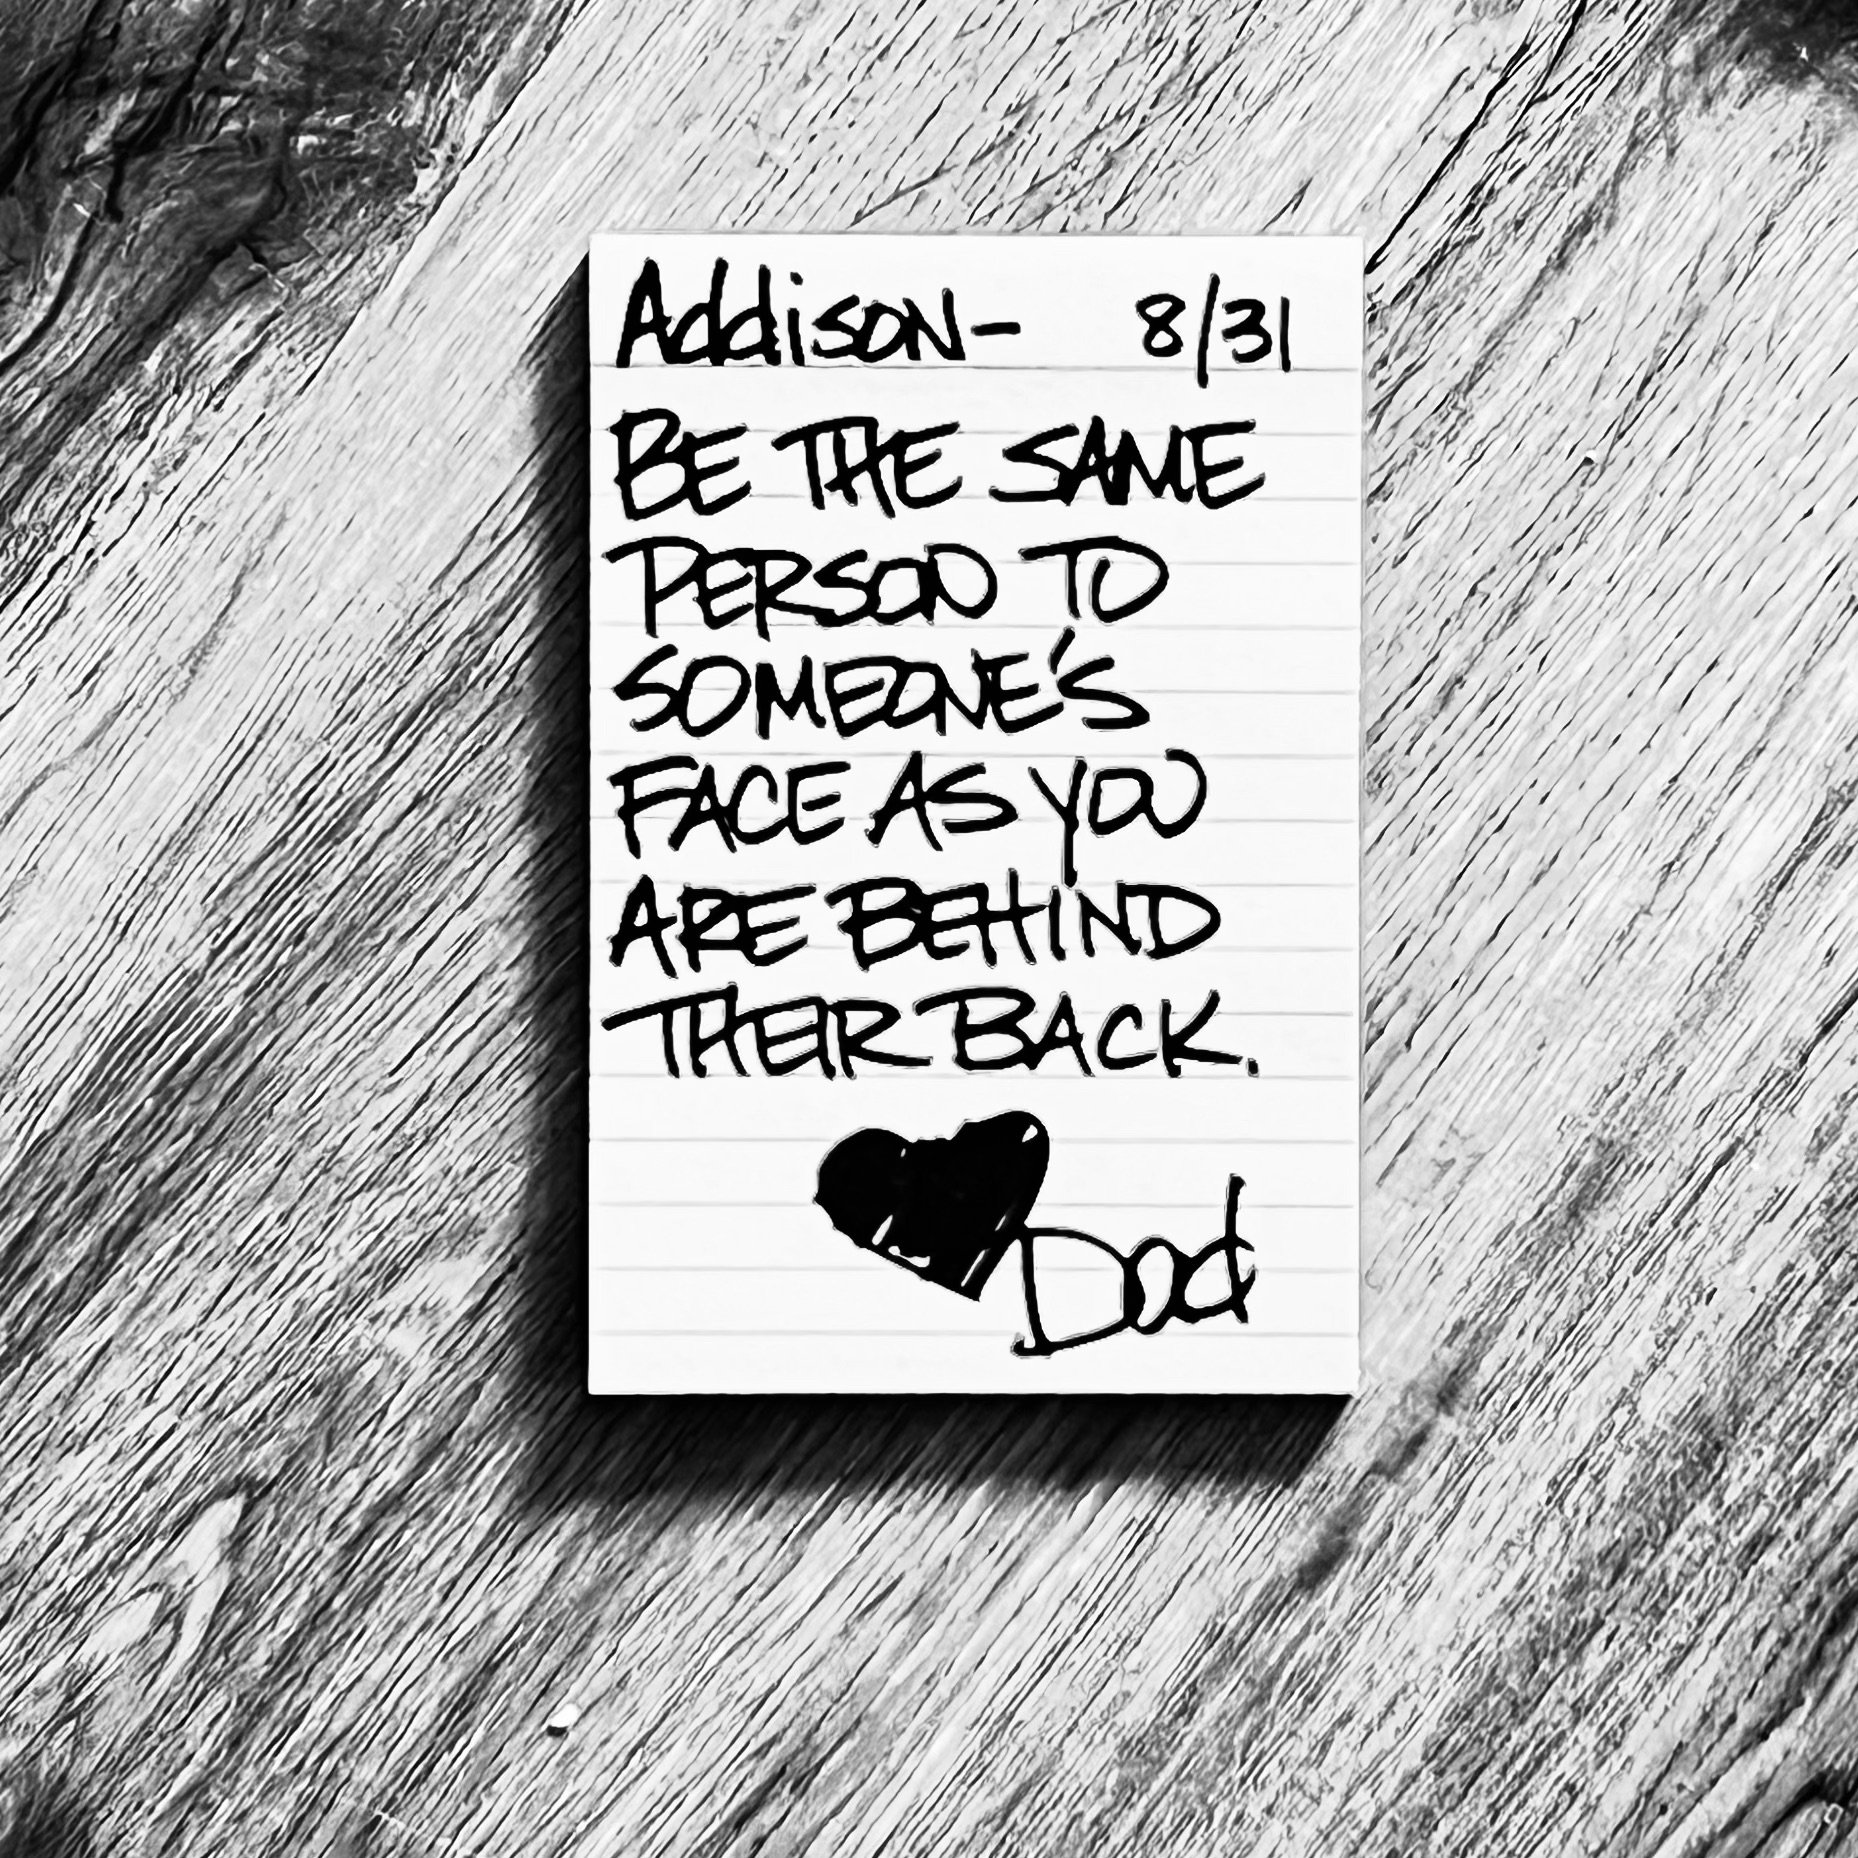 Addison- 8/31
BE THE SAME
PERSON TO
SOMEONE'S
FACE AS YOU
ARE BEHIND
THEIR BACK.
Dad